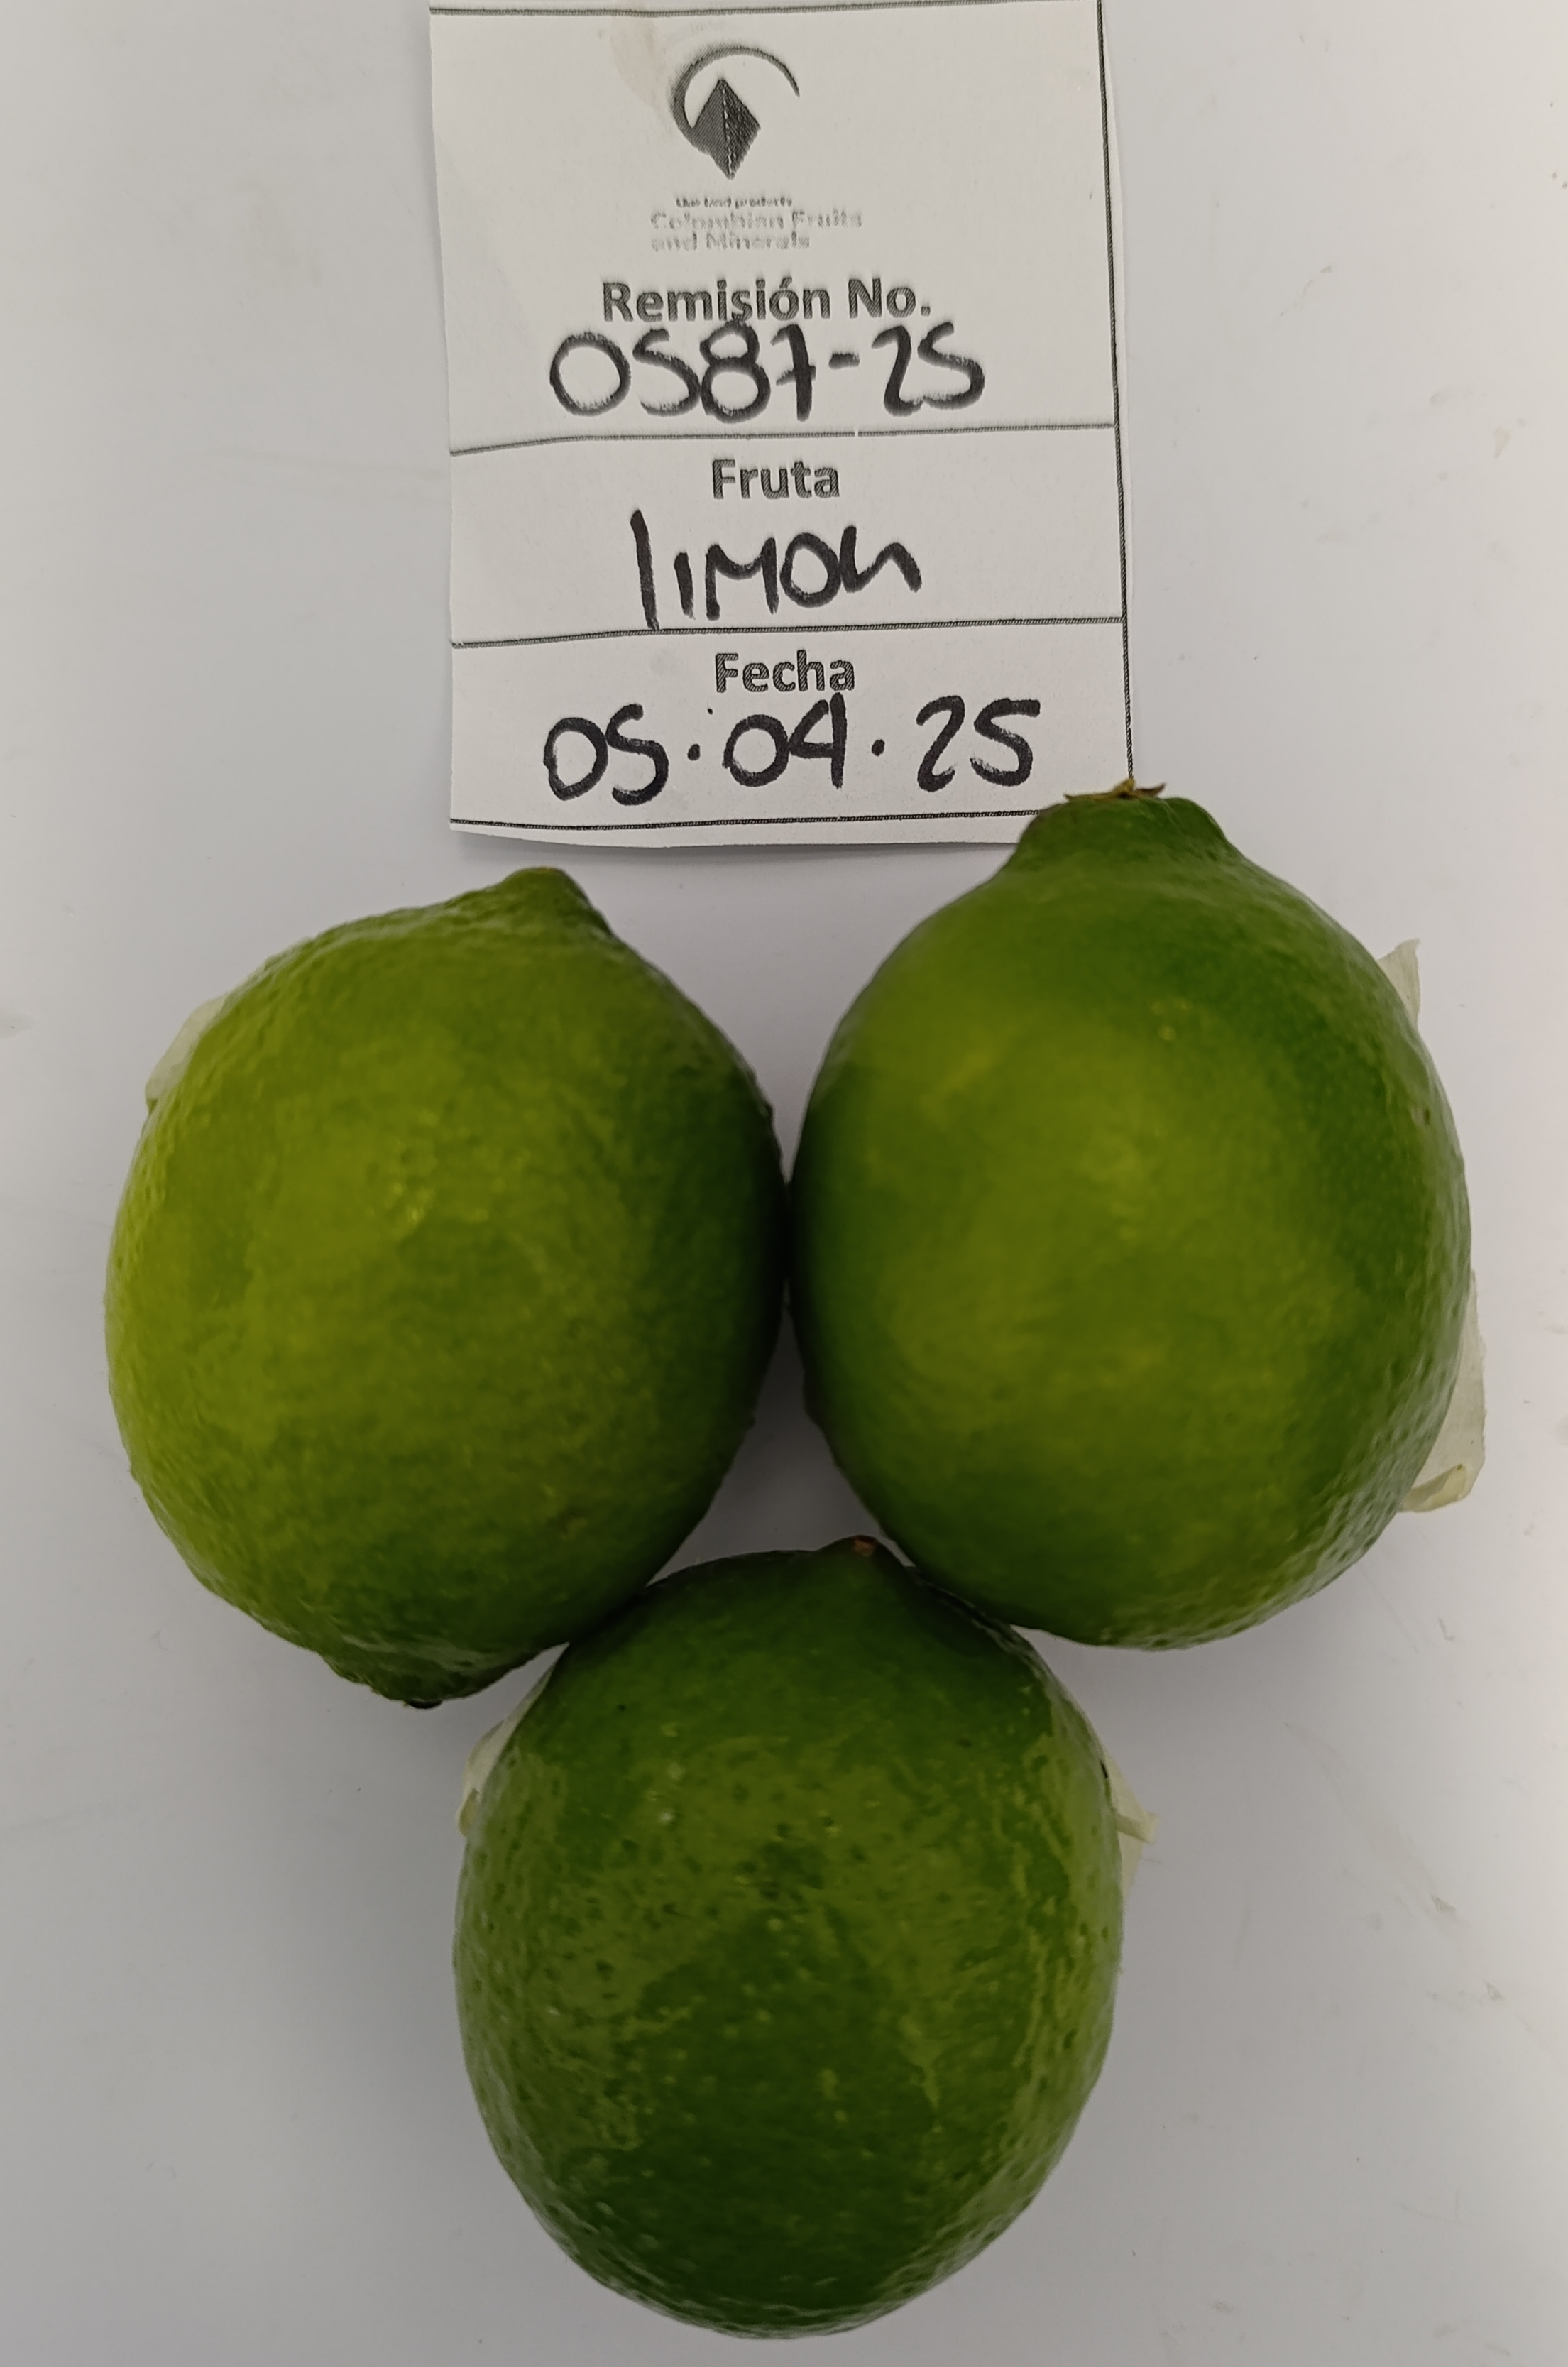 the land products
Colombian Fruits
and Minerals
Remisión No.
0587-25
Fruta
limon
Fecha
05.04.25